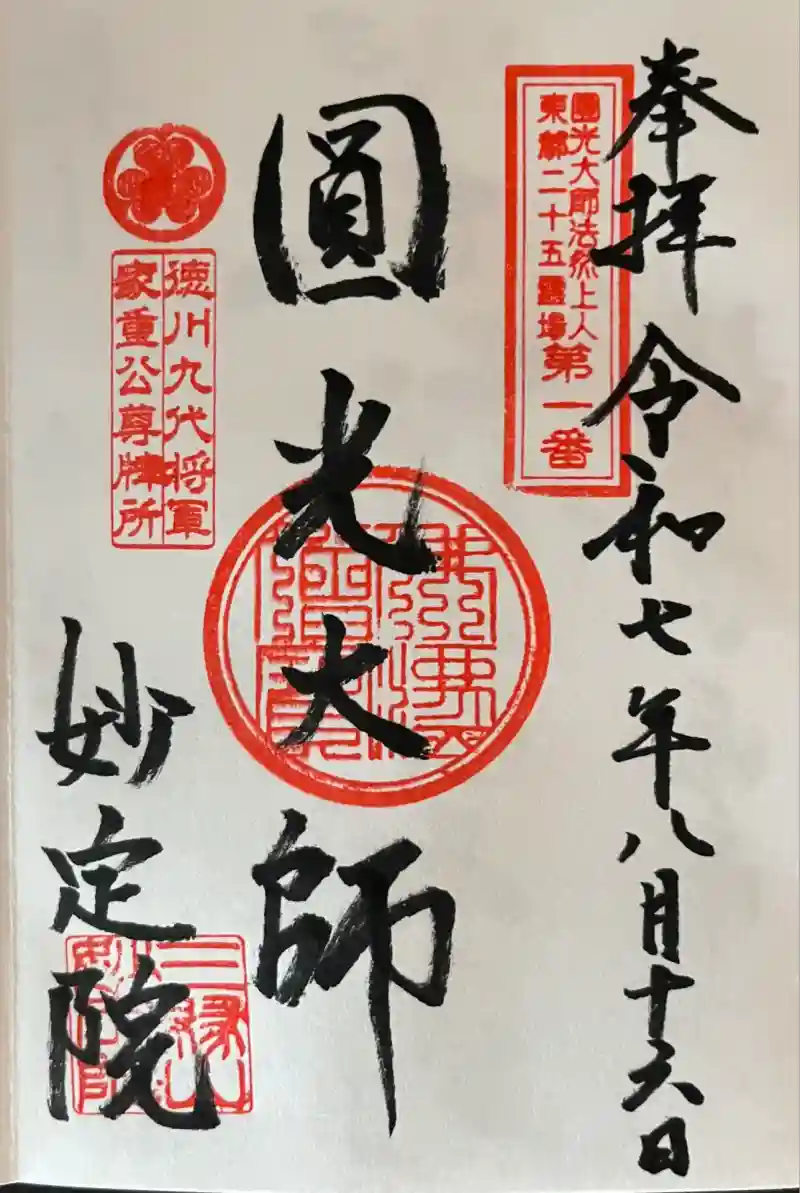 奉拝 令和七年八月十六日
圓光大師法然上人
東都二十五霊場第一番
圓光大師
佛法僧寳
徳川九代将軍
家重公尊牌所
妙定院
三縁山
妙定院